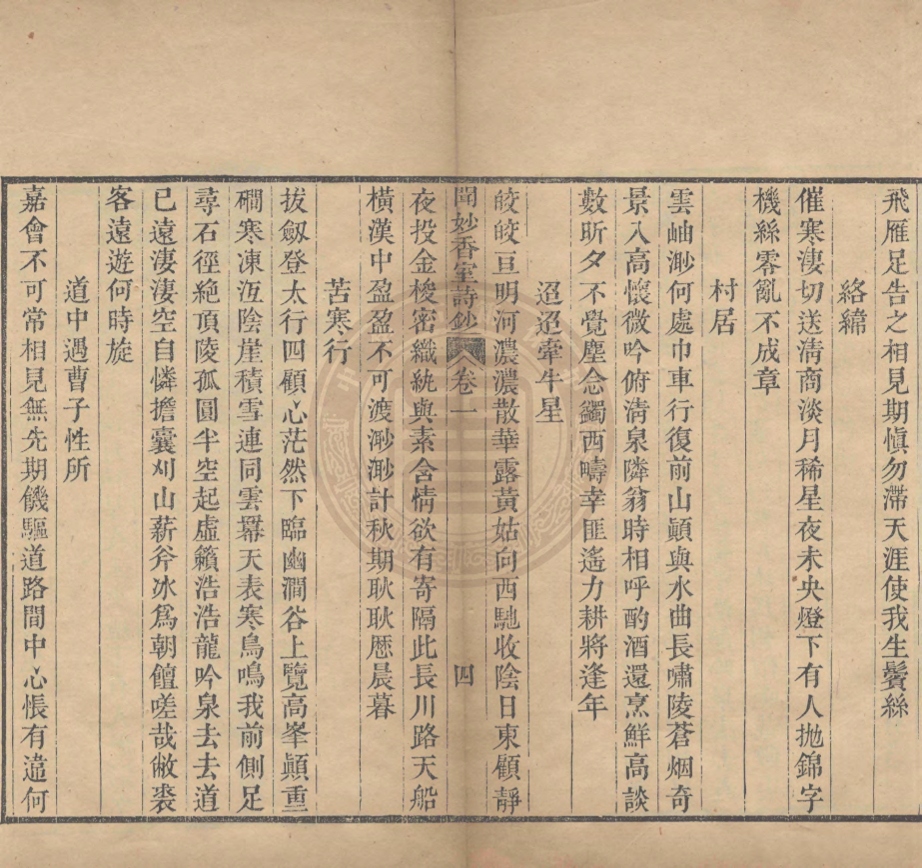 飛雁足告之相見期慎勿滯天涯使我生鬢絲
絡緯
催寒淒切送淸商淡月稀星夜未央燈下有人抛錦字
機絲零亂不成章
村居
雲岫渺何處巾車行復前山巔與水曲長嘯陵蒼烟奇
景入高懷微吟俯淸泉隣翁時相呼酌酒還烹鮮高談
數昕夕不覺塵念蠲西疇幸匪遙力耕將逢年
迢迢牽牛星
皎皎亘明河濃濃散華露黃姑向西馳收陰日東顧靜
聞妙香室詩鈔 卷一 四
夜投金梭密織紈與素含情欲有寄隔此長川路天船
橫漢中盈盈不可渡渺渺計秋期耿耿愿晨暮
苦寒行
拔劔登太行四顧心茫然下臨幽澗谷上覽高峯巔重
磵寒凍冱陰崖積雪連同雲羃天表寒鳥鳴我前側足
尋石徑絶頂陵孤圓半空起虛籟浩浩龍吟泉去去道
已遠淒淒空自憐擔囊刈山薪斧冰爲朝饘嗟哉敝裘
客遠遊何時旋
道中遇曹子性所
嘉會不可常相見無先期饑驅道路間中心悵有違何